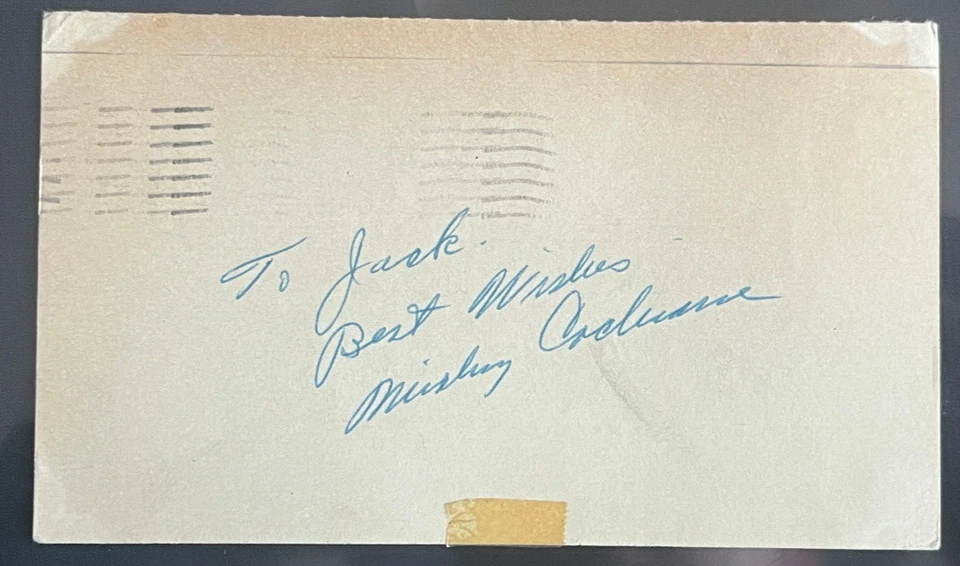 To Jack.
Best Wishes
Mickey Cochrane